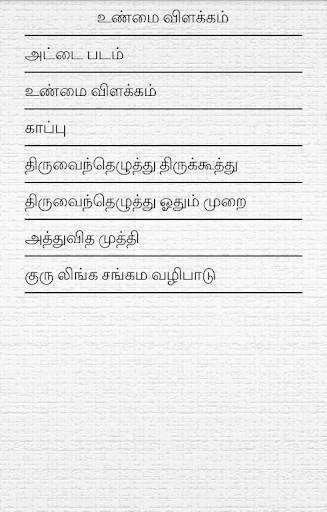 உண்மை விளக்கம்
அட்டை படம்
உண்மை விளக்கம்
காப்பு
திருவைந்தெழுத்து திருக்கூத்து
திருவைந்தெழுத்து ஓதும் முறை
அத்துவித முத்தி
குரு லிங்க சங்கம வழிபாடு